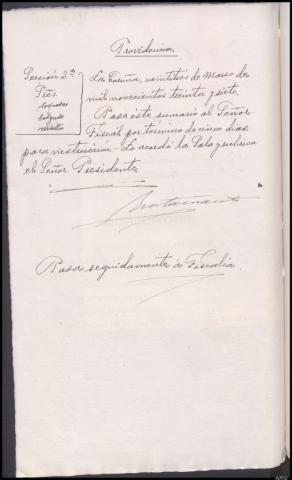 Providencia
Sección 2ª
Sres.
La Coruña, veintitrés de Marzo de
mil novecientos treinta y siete.
Pase este sumario al Señor
Fiscal por termino de cinco dias
para instrucción - Lo acordó la Sala y rubrica
el Señor Presidente
Pasa seguidamente á Fiscalia.